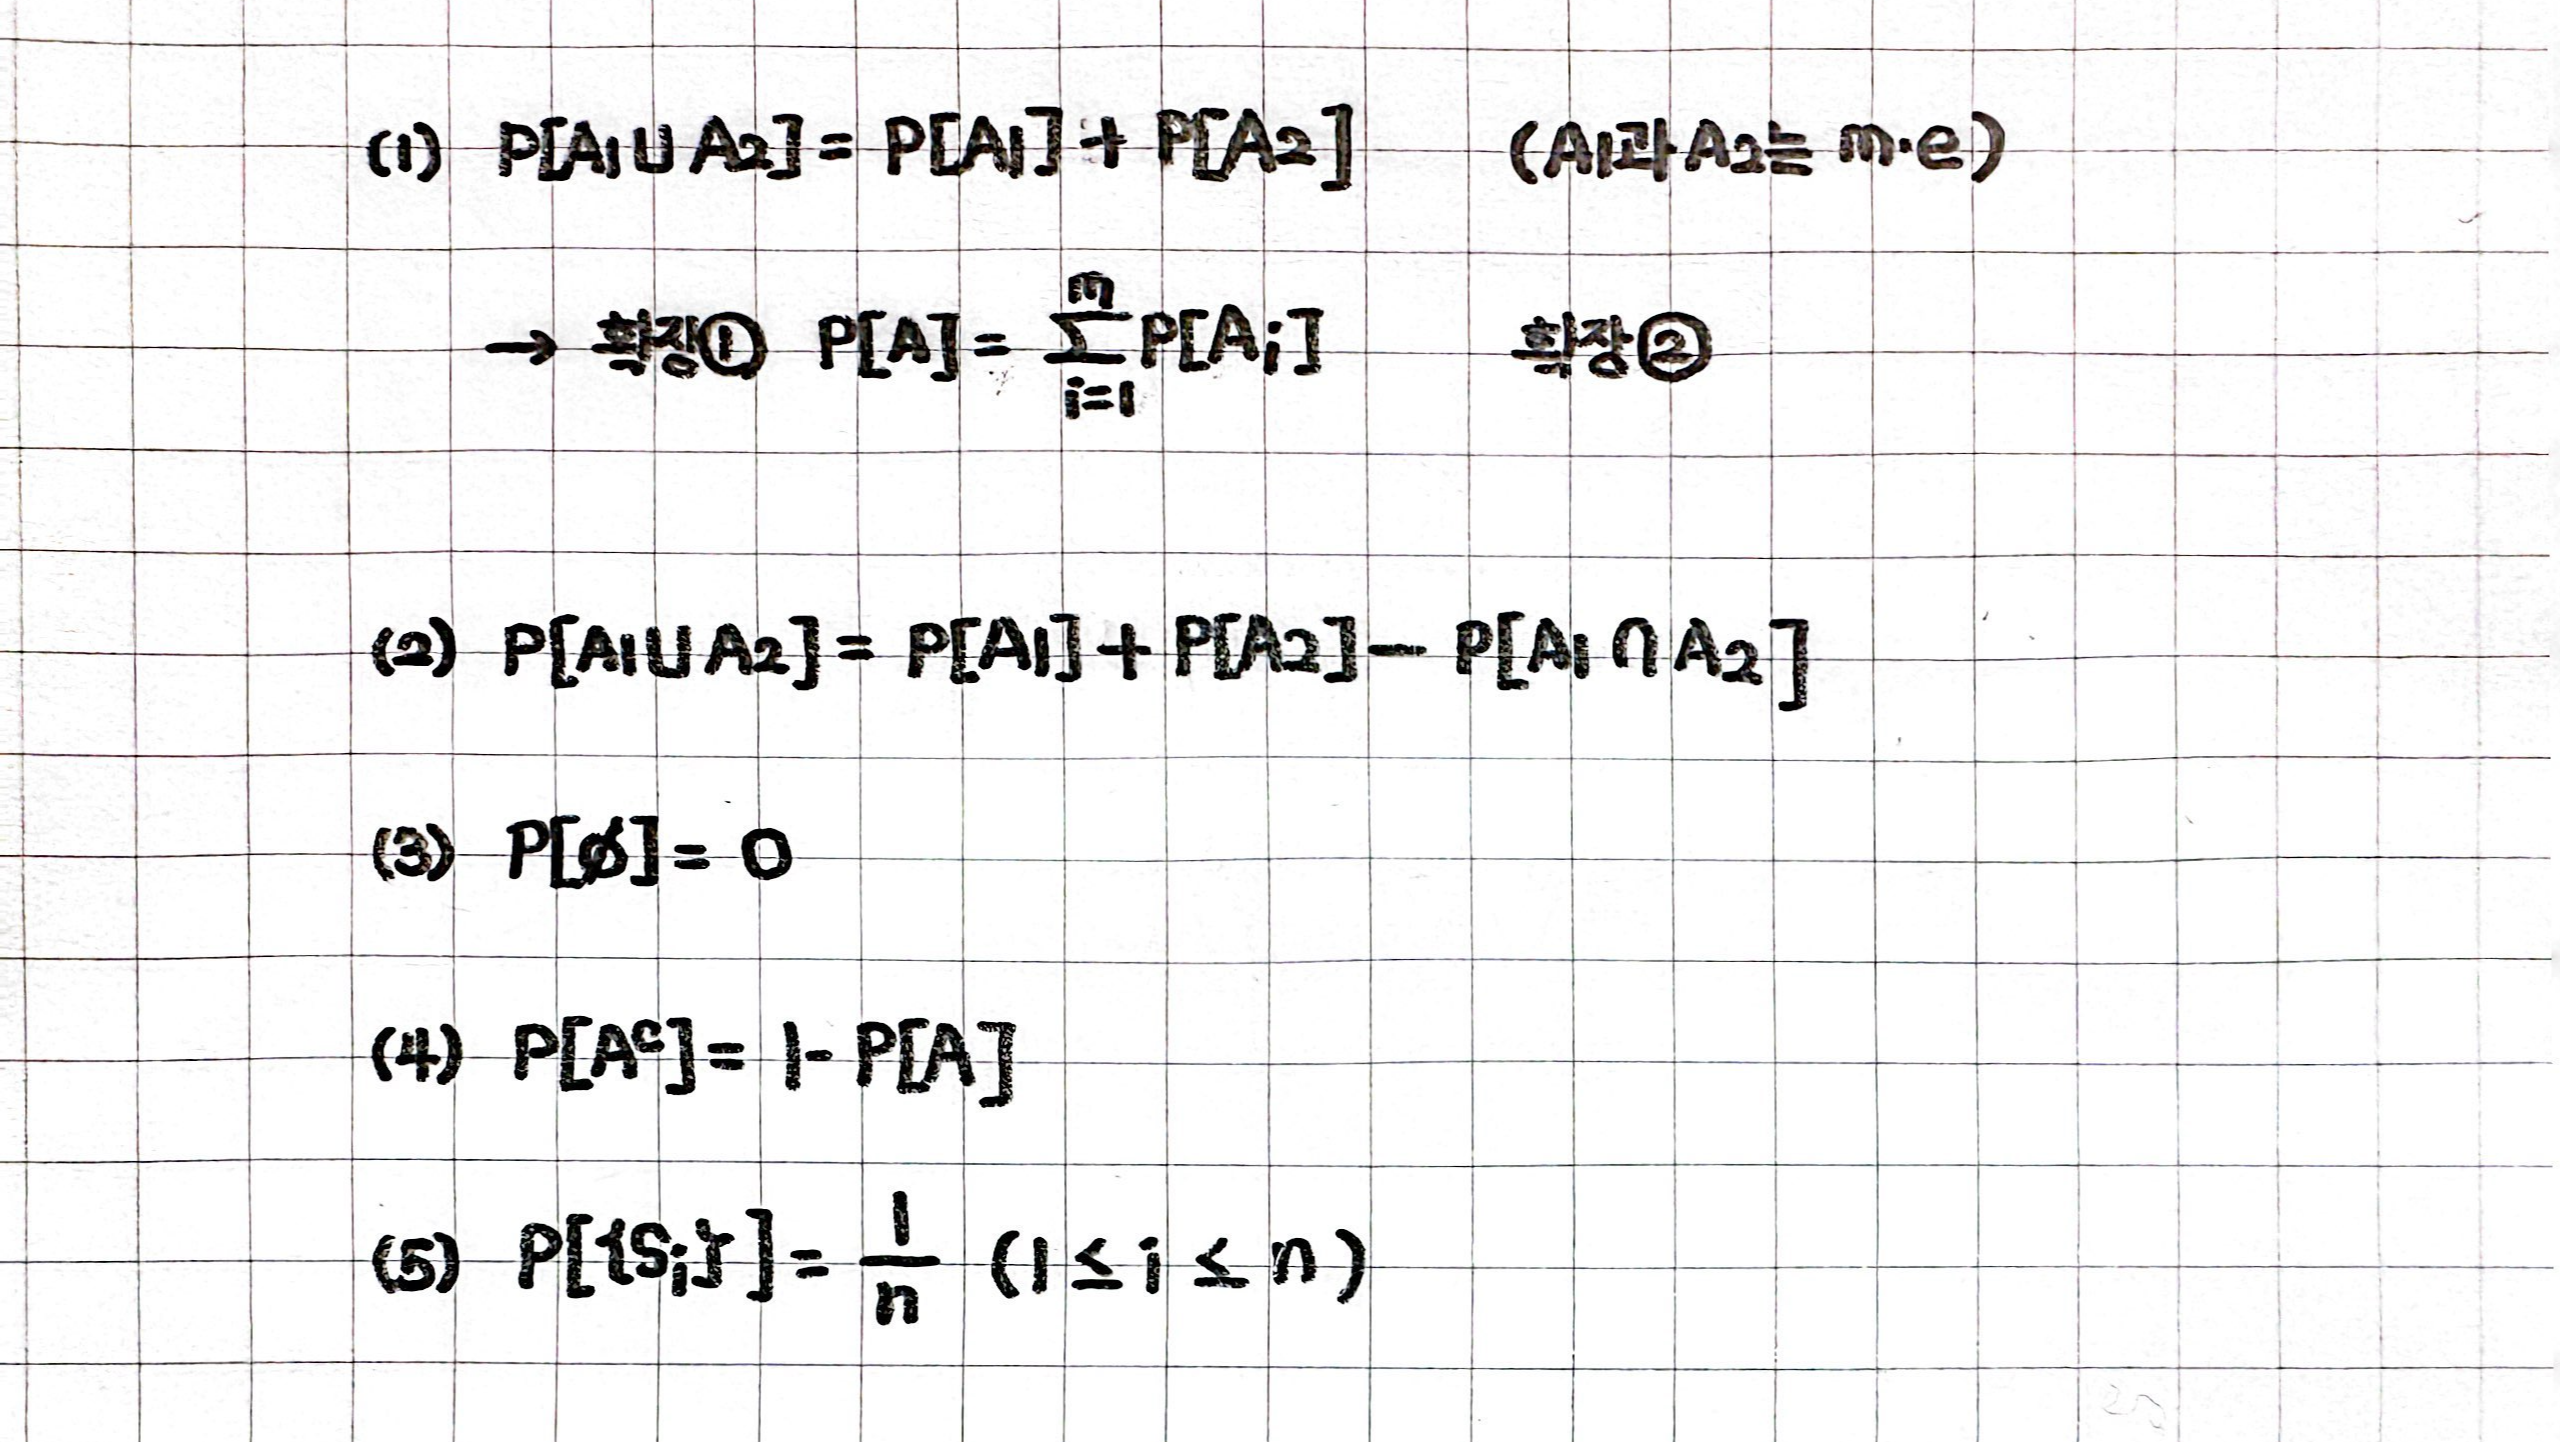 (1) P[A₁∪A₂] = P[A₁] + P[A₂] (A₁과 A₂는 m·e)
→ 확장① P[A] = Σᵢ₌₁ᵐ P[Aᵢ] 확장②
(2) P[A₁∪A₂] = P[A₁] + P[A₂] − P[A₁∩A₂]
(3) P[ø] = 0
(4) P[Aᶜ] = 1 - P[A]
(5) P[{Sᵢ}] = 1/n (1 ≤ i ≤ n)